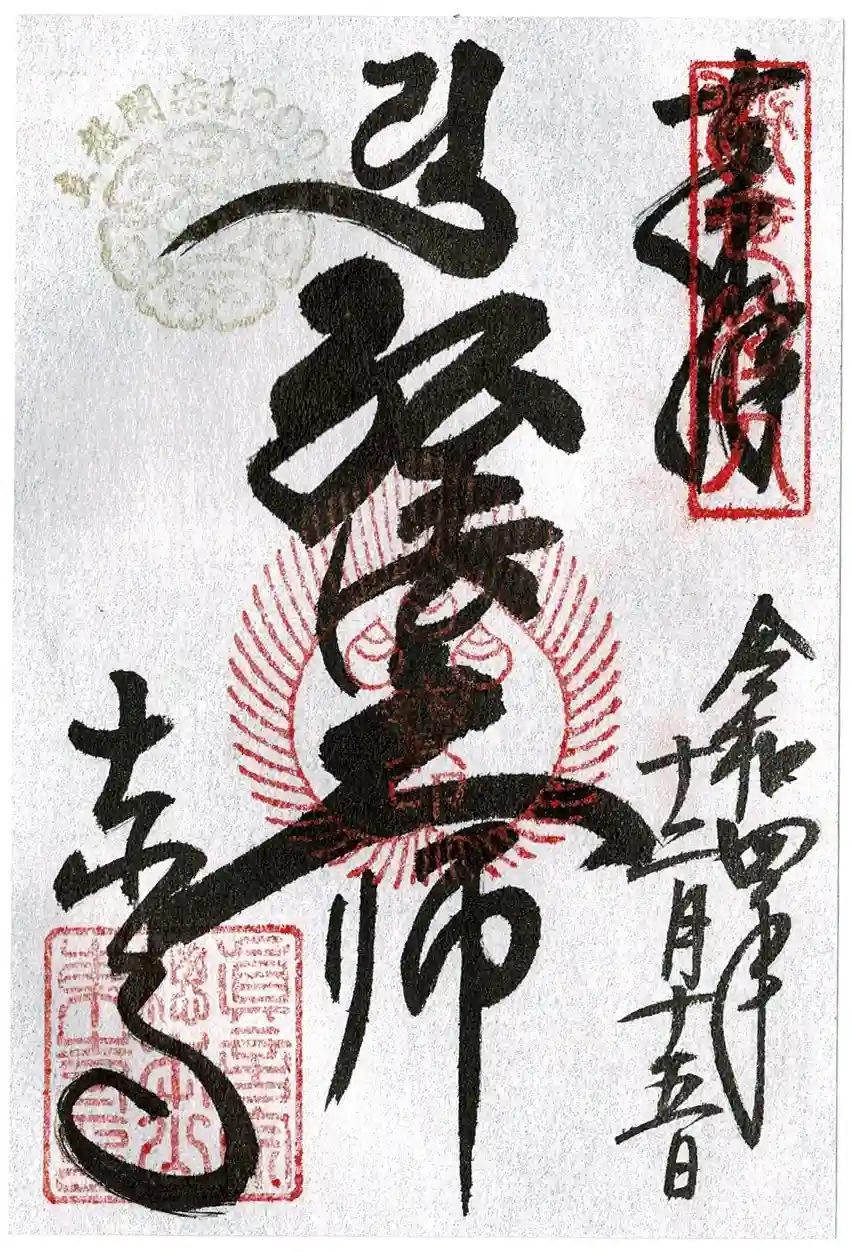 奉拝
令和四年
十二月十五日
弘法大師
東寺
立教開宗1200